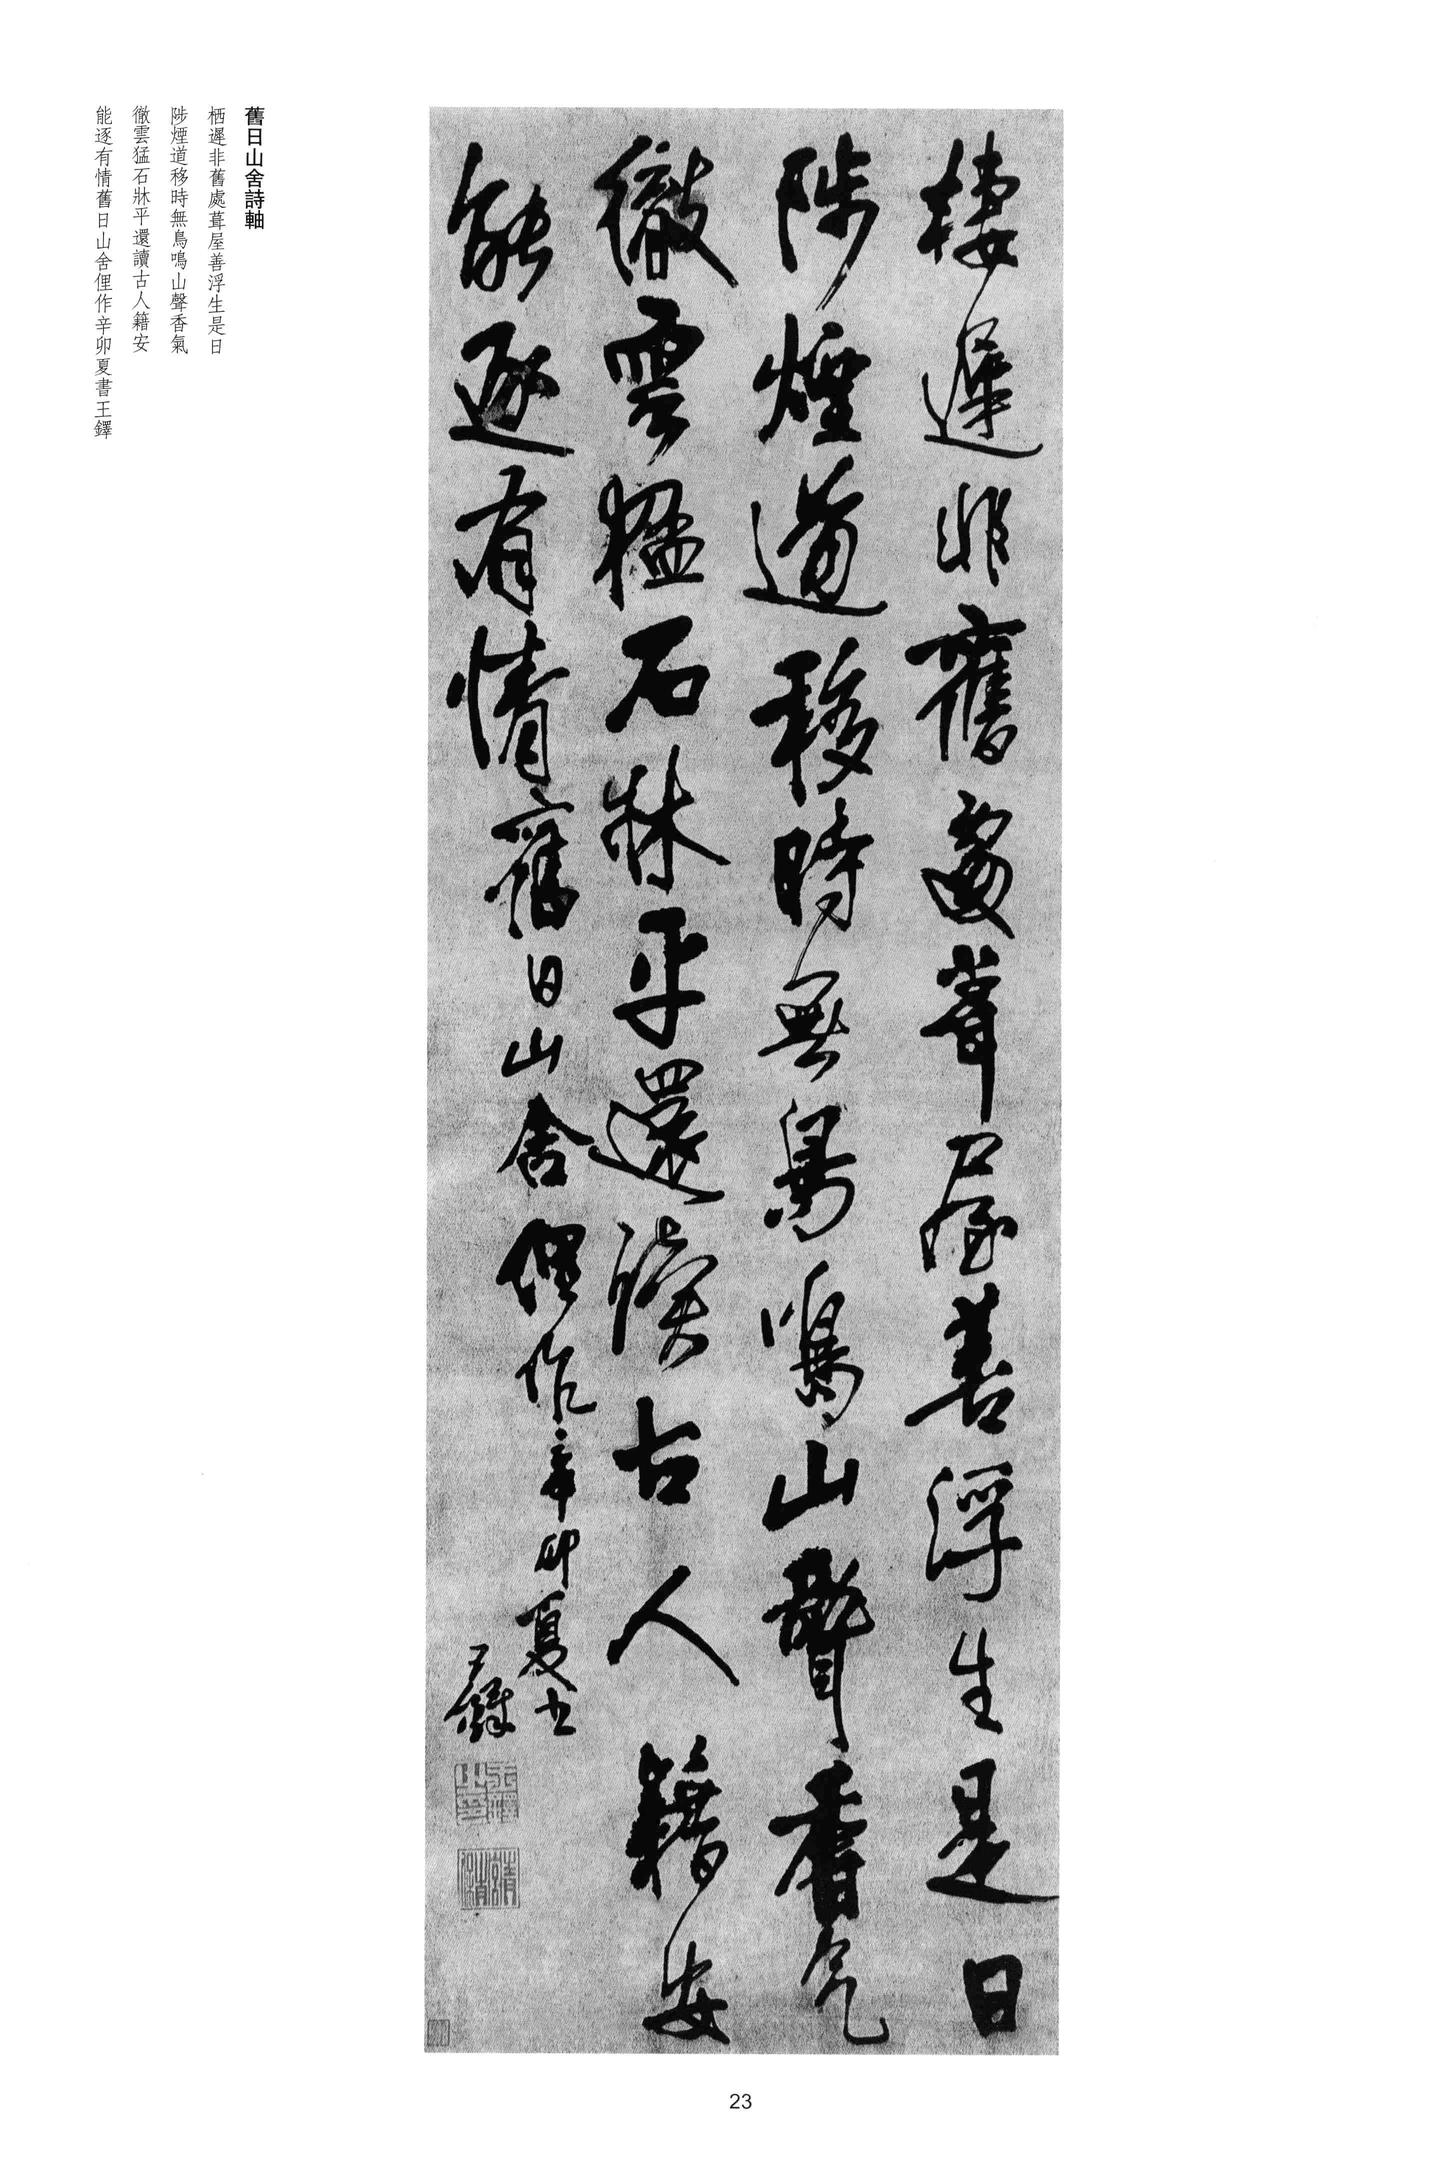 棲遲非舊處葺屋善浮生是日
陟煙道移時無鳥鳴山聲香氣
徹雲猛石牀平還讀古人籍安
能逐有情舊日山舍俚作辛卯夏書
王鐸
舊日山舍詩軸
栖遲非舊處葺屋善浮生是日
陟煙道移時無鳥鳴山聲香氣
徹雲猛石牀平還讀古人籍安
能逐有情舊日山舍俚作辛卯夏書王鐸
23